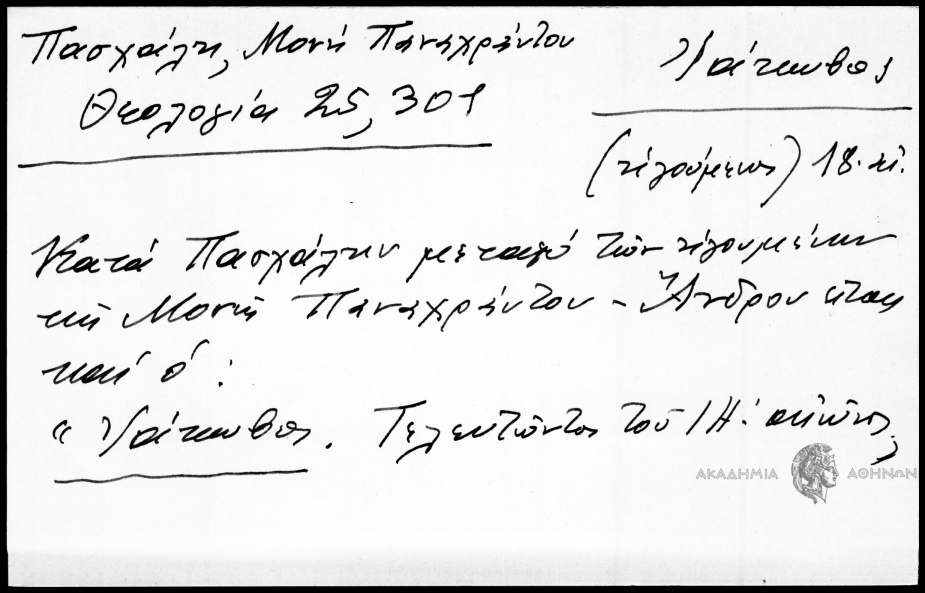 Πασχάλη, Μονή Παναχράντου
Θεολογία 25, 301
Ἰάκωβος
(ἡγούμενος) 18. αἰ.
Κατά Πασχάλην μεταξύ τῶν ἡγουμένων
τῆς Μονῆς Παναχράντου - Ἄνδρου εἶναι
καί ὁ :
« Ἰάκωβος. Τελευτῶντος τοῦ ΙΗ΄. αἰῶνος,
ΑΚΑΔΗΜΙΑ ΑΘΗΝΩΝ